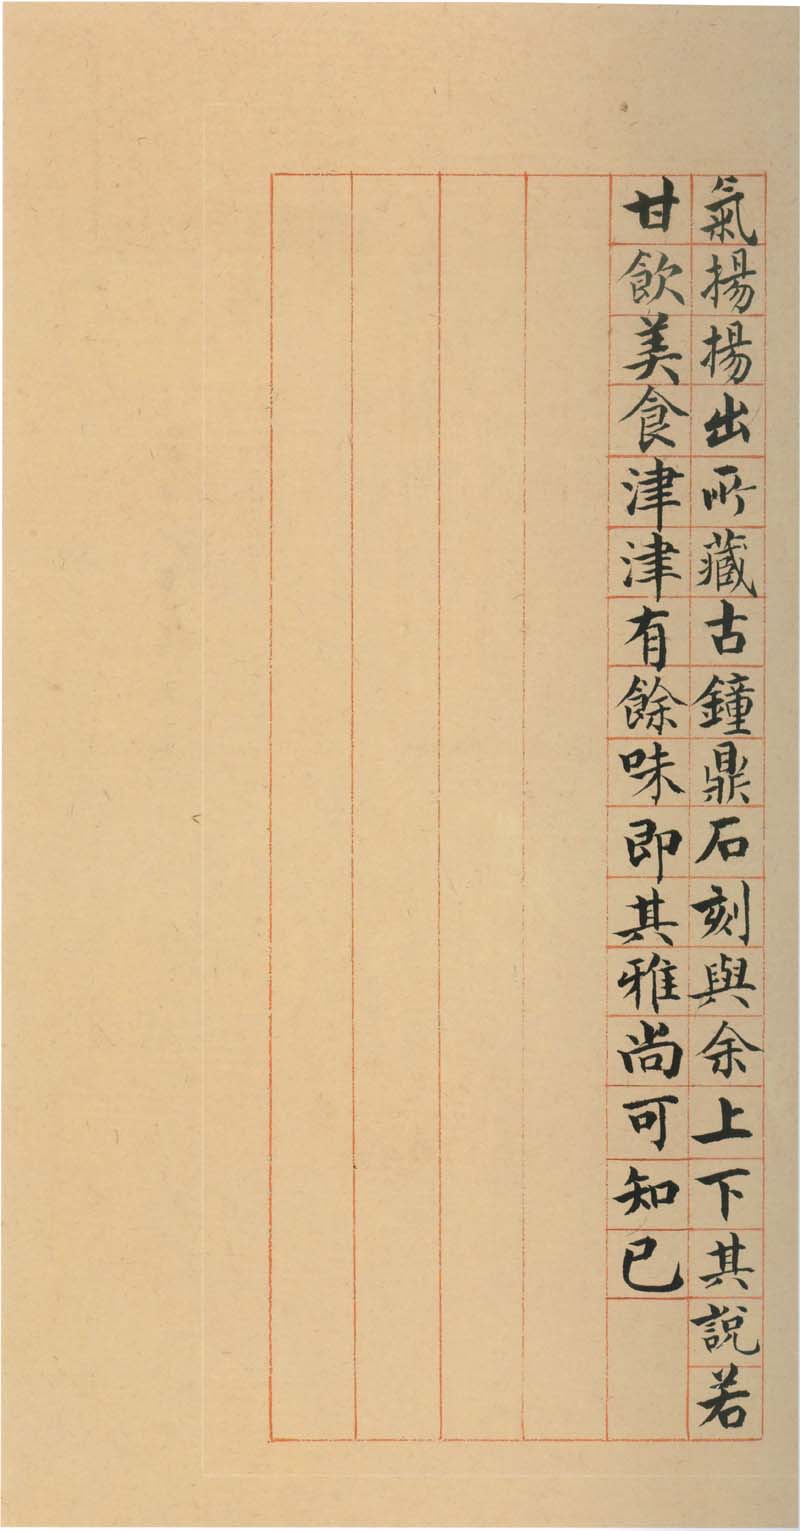 氣揚揚出所藏古鐘鼎石刻與余上下其說若
甘飲美食津津有餘味即其雅尚可知已